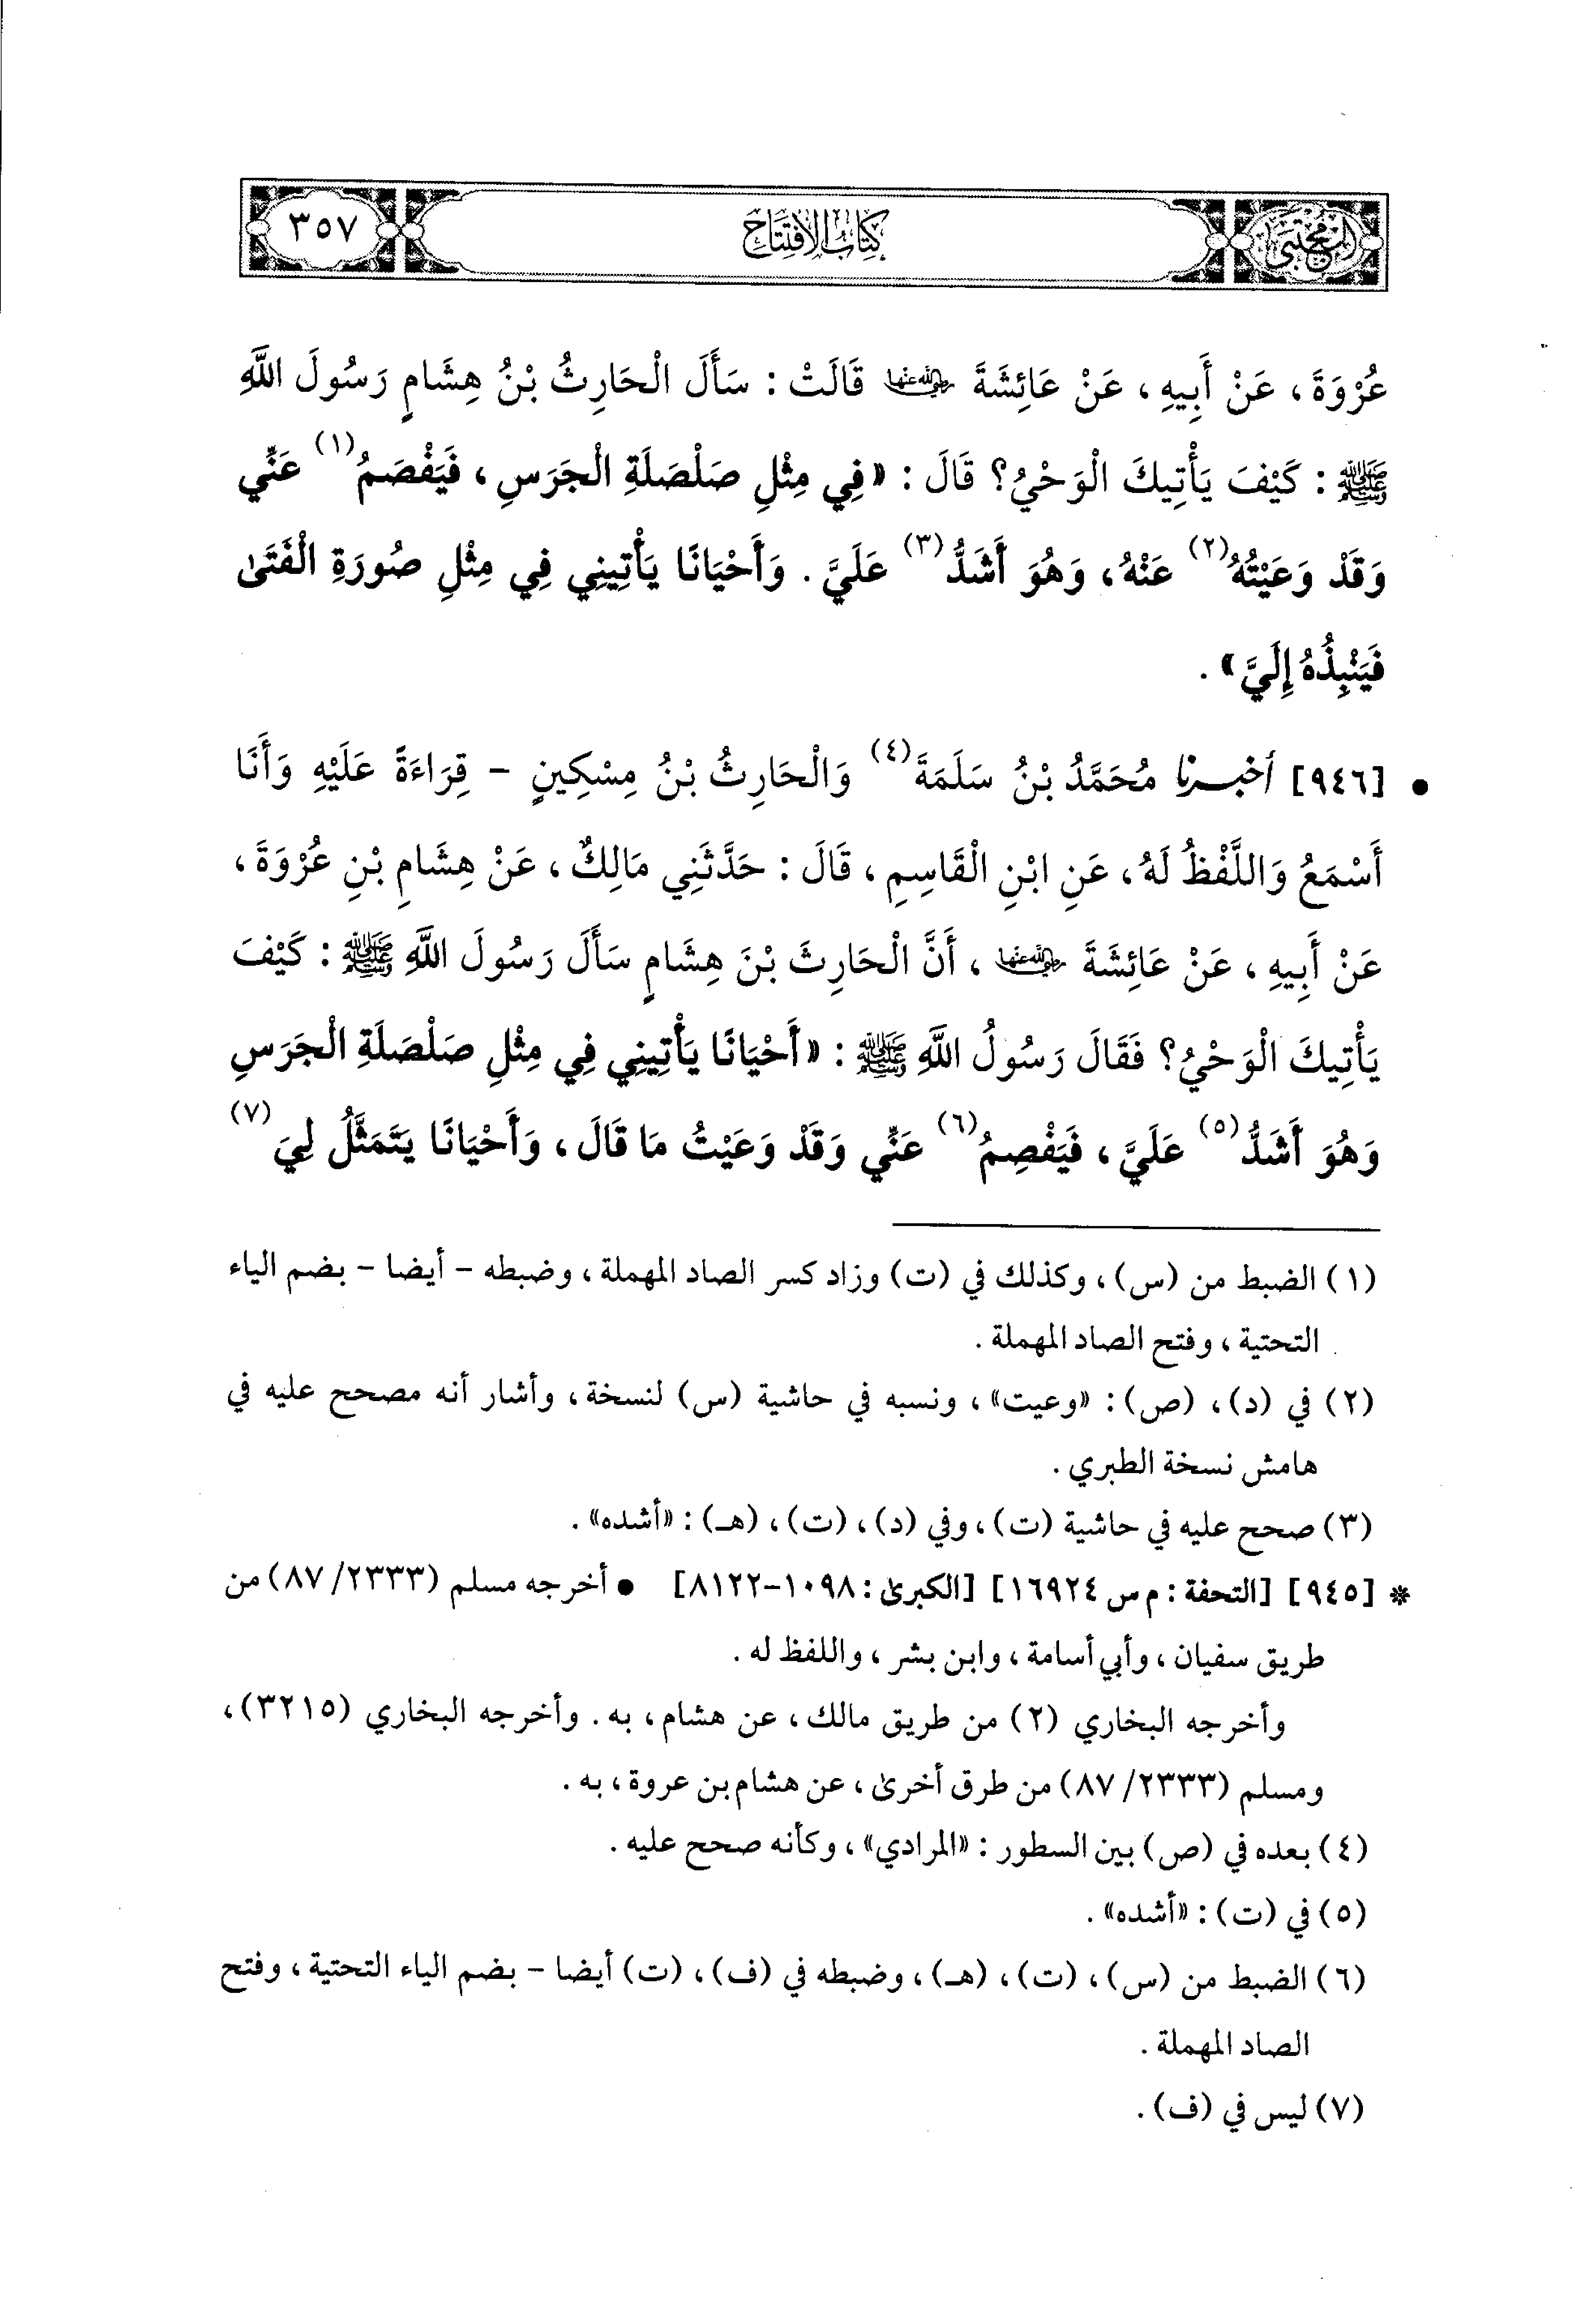 المجتبى
كتاب الافتتاح
٣٥٧
عُرْوَةَ ، عَنْ أَبِيهِ ، عَنْ عَائِشَةَ رضي الله عنها قَالَتْ : سَأَلَ الْحَارِثُ بْنُ هِشَامٍ رَسُولَ اللَّهِ
ﷺ : كَيْفَ يَأْتِيكَ الْوَحْيُ؟ قَالَ : «فِي مِثْلِ صَلْصَلَةِ الْجَرَسِ ، فَيَفْصَمُ(١) عَنِّي
وَقَدْ وَعَيْتُهُ(٢) عَنْهُ، وَهُوَ أَشَدُّ(٣) عَلَيَّ . وَأَحْيَانًا يَأْتِينِي فِي مِثْلِ صُورَةِ الْفَتَىٰ
فَيَنْبِذُهُ إِلَيَّ» .
• [٩٤٦] أخبرنا مُحَمَّدُ بْنُ سَلَمَةَ(٤) وَالْحَارِثُ بْنُ مِسْكِينٍ - قِرَاءَةً عَلَيْهِ وَأَنَا
أَسْمَعُ وَاللَّفْظُ لَهُ، عَنِ ابْنِ الْقَاسِمِ ، قَالَ : حَدَّثَنِي مَالِكٌ ، عَنْ هِشَامِ بْنِ عُرْوَةَ ،
عَنْ أَبِيهِ ، عَنْ عَائِشَةَ رضي الله عنها ، أَنَّ الْحَارِثَ بْنَ هِشَامٍ سَأَلَ رَسُولَ اللَّهِ ﷺ : كَيْفَ
يَأْتِيكَ الْوَحْيُ؟ فَقَالَ رَسُولُ اللَّهِ ﷺ : «أَحْيَانًا يَأْتِينِي فِي مِثْلِ صَلْصَلَةِ الْجَرَسِ
وَهُوَ أَشَدُّ(٥) عَلَيَّ ، فَيَفْصِمُ(٦) عَنِّي وَقَدْ وَعَيْتُ مَا قَالَ ، وَأَحْيَانًا يَتَمَثَّلُ لِيَ(٧)
(١) الضبط من (س) ، وكذلك في (ت) وزاد كسر الصاد المهملة ، وضبطه - أيضا - بضم الياء
التحتية ، وفتح الصاد المهملة .
(٢) في (د) ، (ص) : «وعيت» ، ونسبه في حاشية (س) لنسخة ، وأشار أنه مصحح عليه في
هامش نسخة الطبري .
(٣) صحح عليه في حاشية (ت) ، وفي (د) ، (ت) ، (هـ) : «أشده» .
* [٩٤٥] [التحفة : م س ١٦٩٢٤] [الكبرىٰ : ١٠٩٨-٨١٢٢] • أخرجه مسلم (٨٧/٢٣٣٣) من
طريق سفيان ، وأبي أسامة ، وابن بشر ، واللفظ له .
وأخرجه البخاري (٢) من طريق مالك ، عن هشام ، به . وأخرجه البخاري (٣٢١٥) ،
ومسلم (٨٧/٢٣٣٣) من طرق أخرىٰ ، عن هشام بن عروة ، به .
(٤) بعده في (ص) بين السطور : «المرادي» ، وكأنه صحح عليه .
(٥) في (ت) : «أشده» .
(٦) الضبط من (س) ، (ت) ، (هـ) ، وضبطه في (ف) ، (ت) أيضا - بضم الياء التحتية ، وفتح
الصاد المهملة .
(٧) ليس في (ف) .